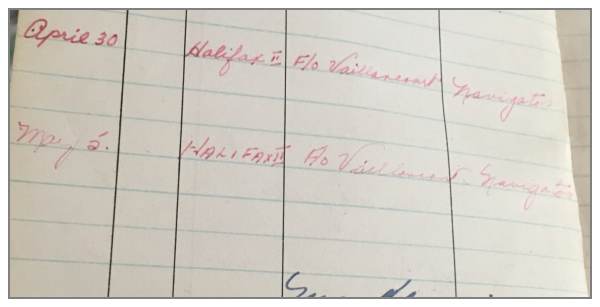 April 30 Halifax II F/o Vaillancourt Navigator
May 5. HALIFAX II F/o Vaillancourt Navigator